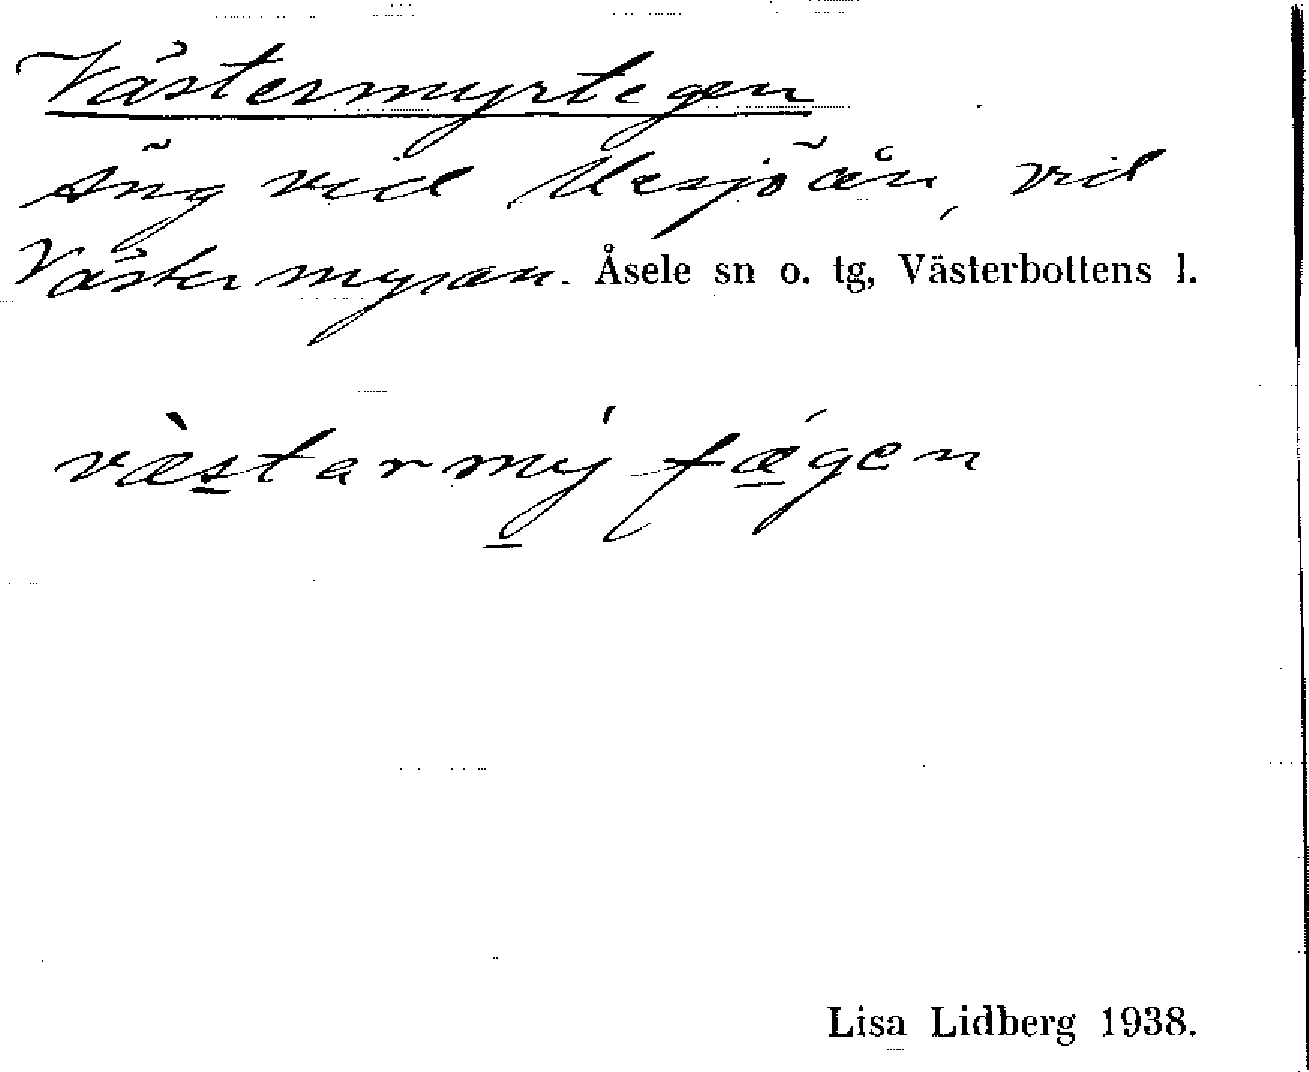 Västermyrtegen
Äng vid Mesjöån, vid
Västermyran. Åsele sn o. tg, Västerbottens l.
Lisa Lidberg 1938.